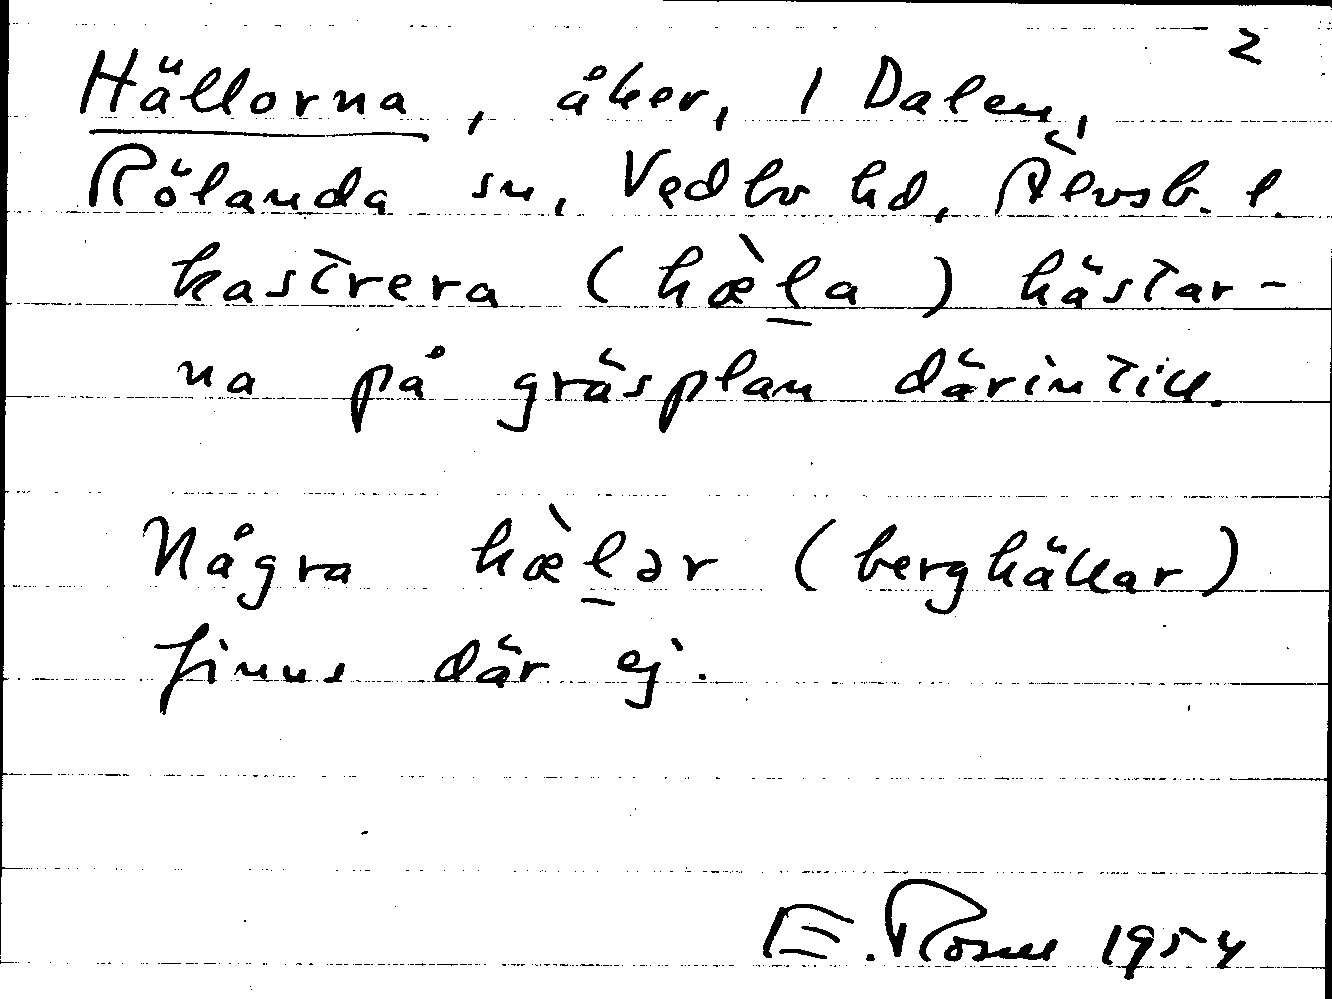 2
Hällorna, åker, 1 Dalen,
Rölanda sn, Vedbo hd, Älvsb. l.
kastrera (hæ̀l̠a) hästar-
na på gräsplan därintill.
Några hæ̀l̠ər (berghällar)
finns där ej.
E. Rosell 1954